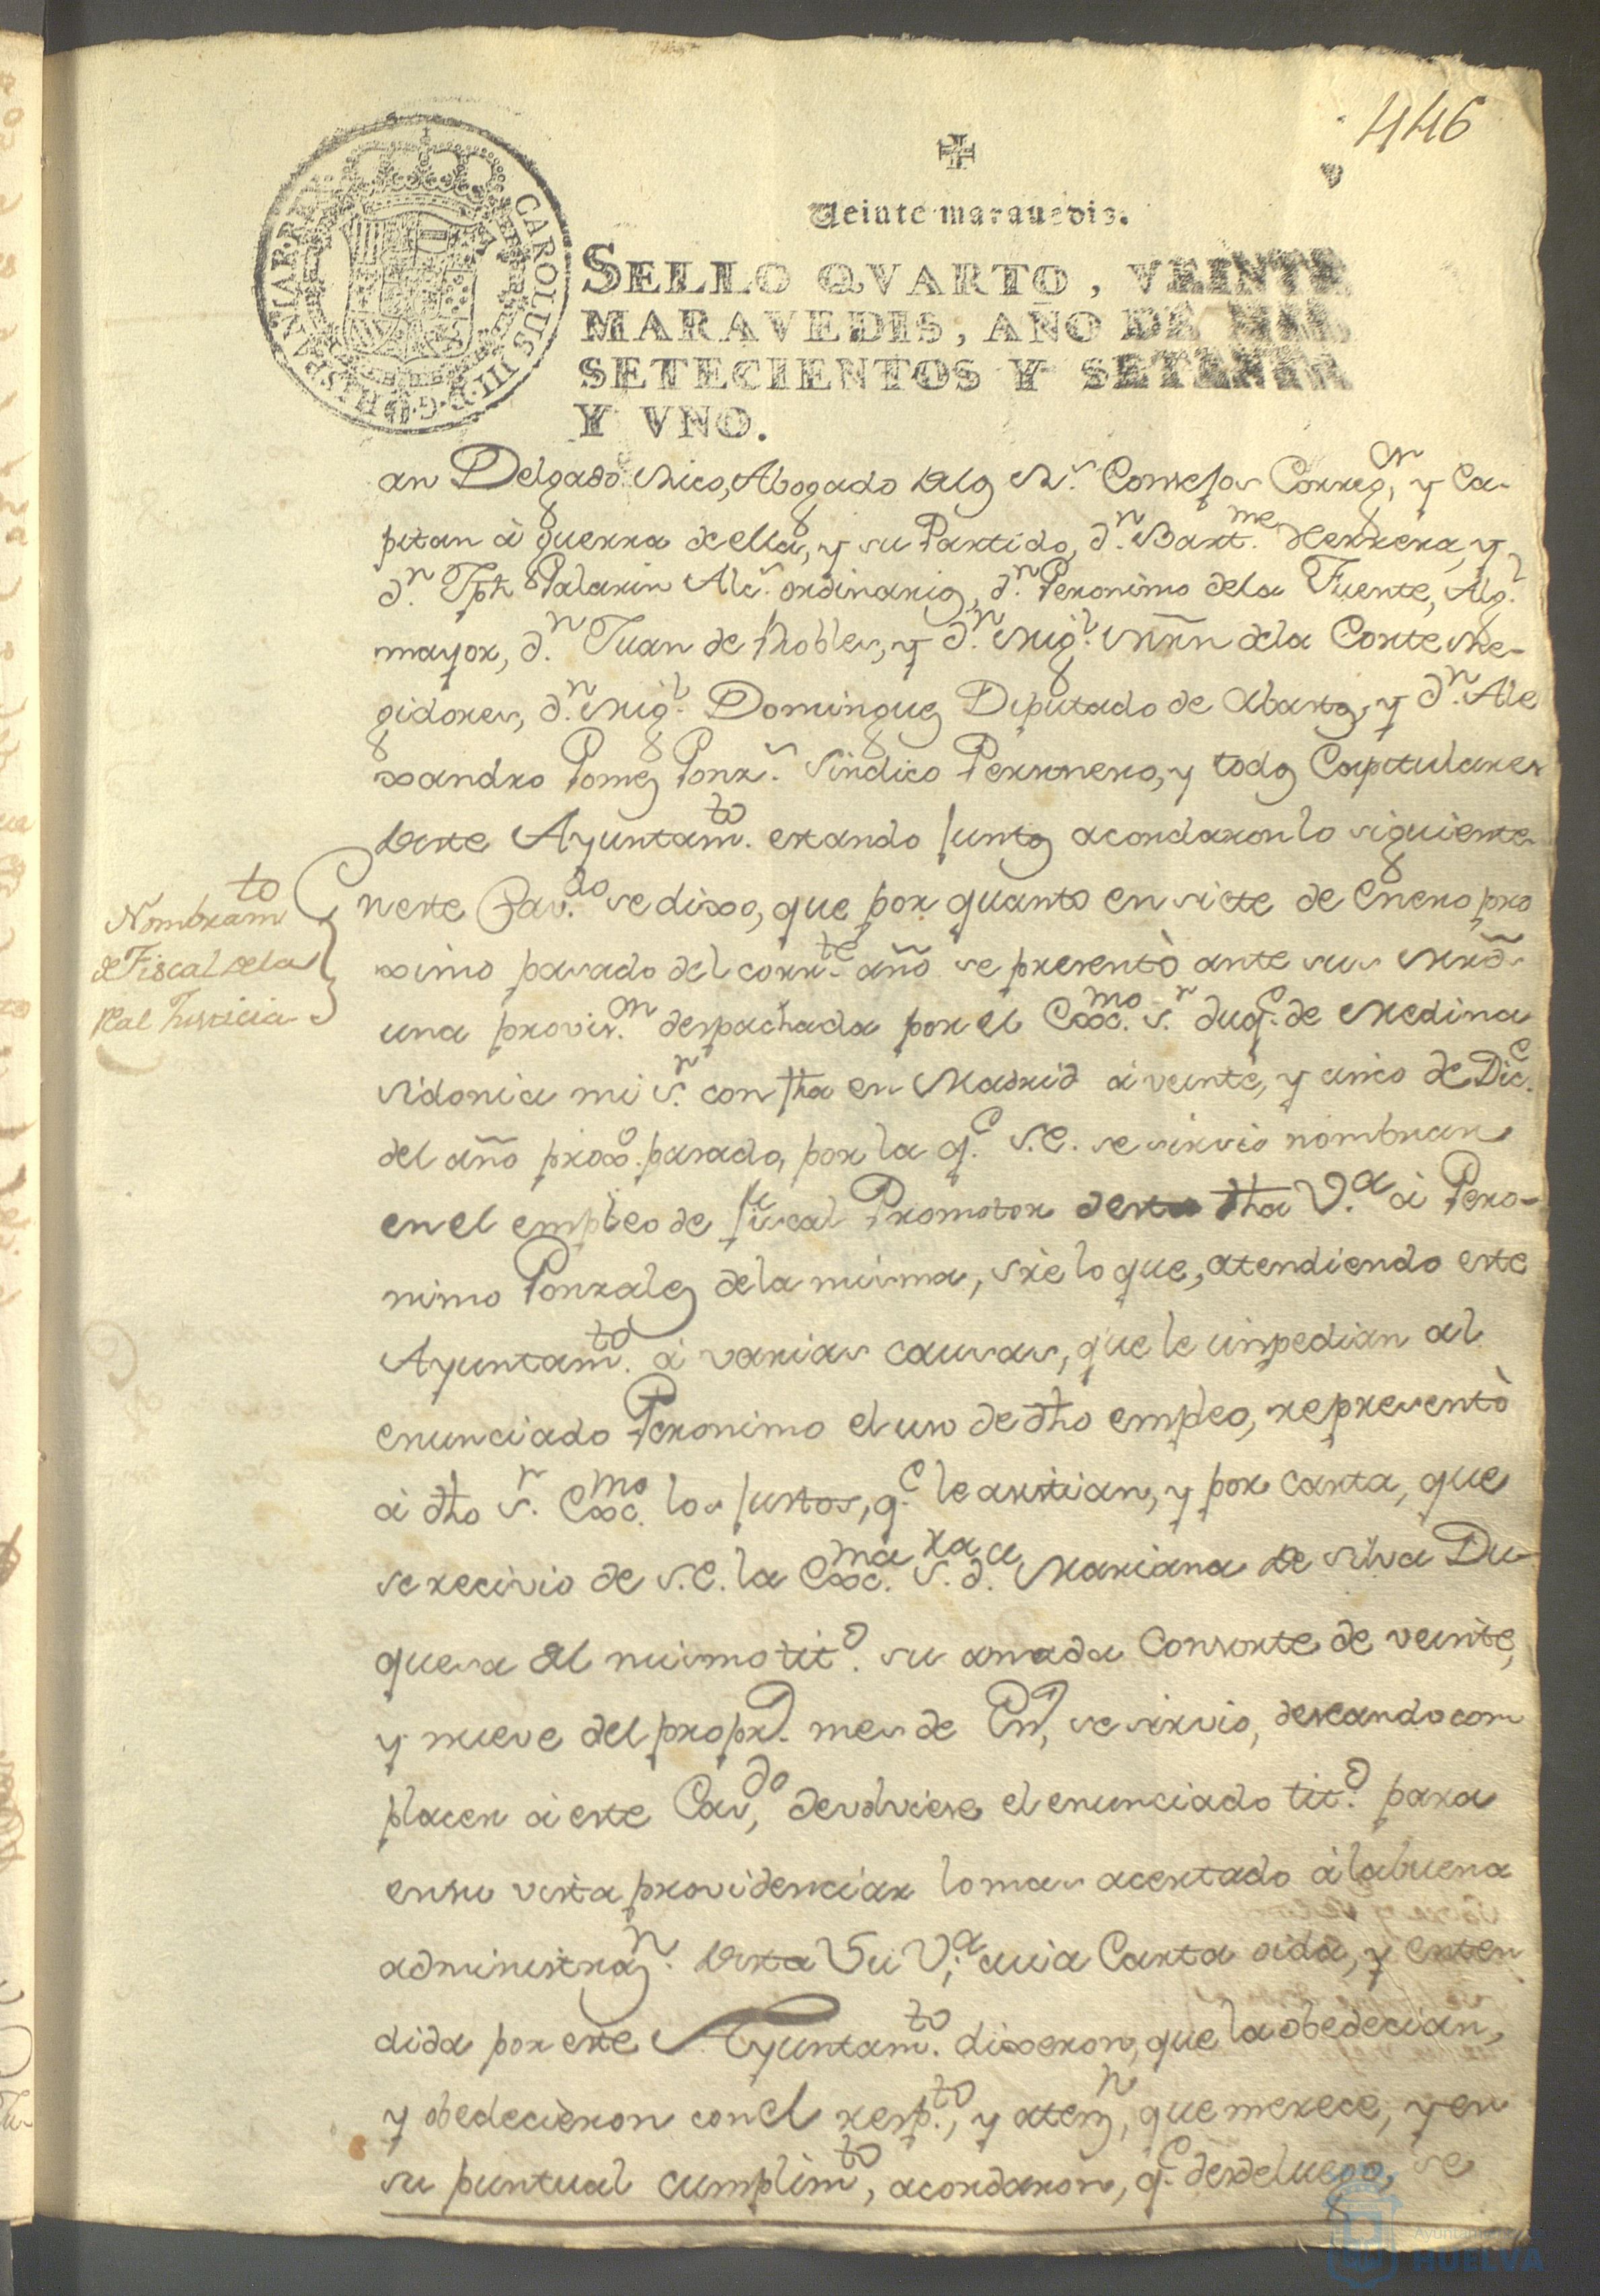 446
Veinte maravedis.
SELLO QVARTO, VEINTE
MARAVEDIS, AÑO DE MIL
SETECIENTOS Y SETENTA
Y VNO.
CAROLUS III D.G. HISPANIAR. REX
an Delgado Rico, Abogado delos Rs. Consejos Correg.or, y Ca-
pitan à guerra de ella, y su Partido, d.n Bart.me Herrera, y
d.n Jph Palarin Alcs. ordinarios, d.n Geronimo dela Fuente, Alg.l
mayor, d.n Juan de Robles, y d.n Mig.l Mrñ dela Corte Re-
gidores, d.n Mig.l Dominguez Diputado de Abastos, y d.n Ale
xandro Gomez Gonz.s Sindico Personero, y todos Capitulares
deste Ayuntam.to estando juntos acordaron lo siguiente
Nombram.to
de Fiscal dela
Real Justicia
En este Cav.do se dixo, que por quanto en siete de Enero pro
ximo pasado del corr.te año se presentò ante sus Mrds
una provis.on despachada por el Exc.mo S.r duq.e de Medina
Sidonia mi S.r con fha en Madrid à veinte, y cinco de Dic.e
del año prox.o pasado, por la q.e S.E. se sirvio nombrar
en el empleo de fiscal Promotor desta dha V.a à Gero-
nimo Gonzalez dela misma, sre lo que, atendiendo este
Ayuntam.to à varias causas, que le impedian al
enunciado Geronimo el uso de dho empleo, representò
à dho S.r Exc.mo los justos, q.e le asistian, y por carta, que
se recivio de S.E. la Exc.ma S.ra d.a Mariana de Silva Du-
quesa del mismo tit.o su amada Consorte de veinte,
y nueve del propr.o mes de En.o, se sirvio, deseando com
placer à este Cav.do, devolviese el enunciado tit.o para
en su vista providenciar lo mas acertado à la buena
administraz.n desta Su V.a cuia Carta oida, y enten
dida por este Ayuntam.to dixeron, que la obedecian,
y obedecieron con el resp.to, y atenz.n, que merece, y en
su puntual cumplim.to, acordaron, q.e desde luego, se
Ayuntamiento
HUELVA